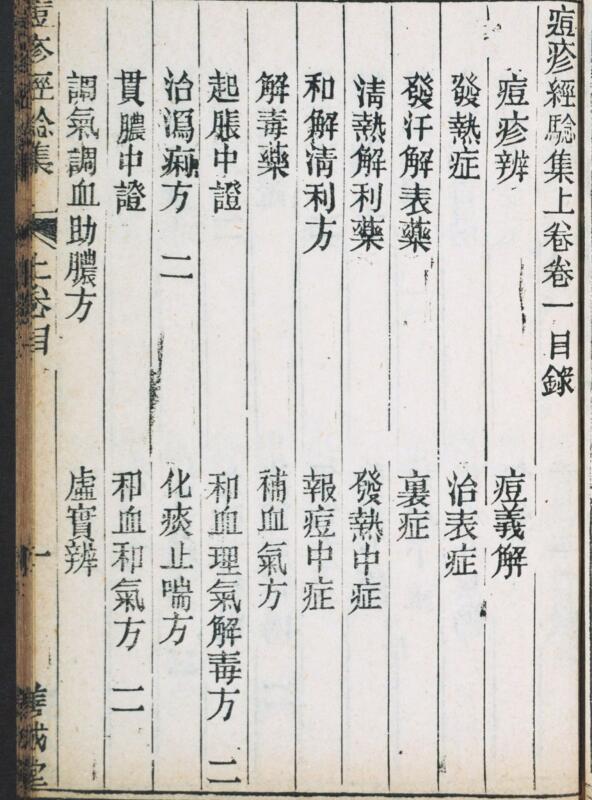 痘疹經驗集上卷卷一目錄
痘疹辨 痘義解
發熱症 治表症
發汗解表藥 裏症
清熱解利藥 發熱中症
和解清利方 報痘中症
解毒藥 補血氣方
起脹中證 和血理氣解毒方 二
治瀉痢方 二 化痰止喘方
貫膿中證 和血和氣方 二
調氣調血助膿方 虛實辨
痘疹經驗集 上卷目 一 善成堂